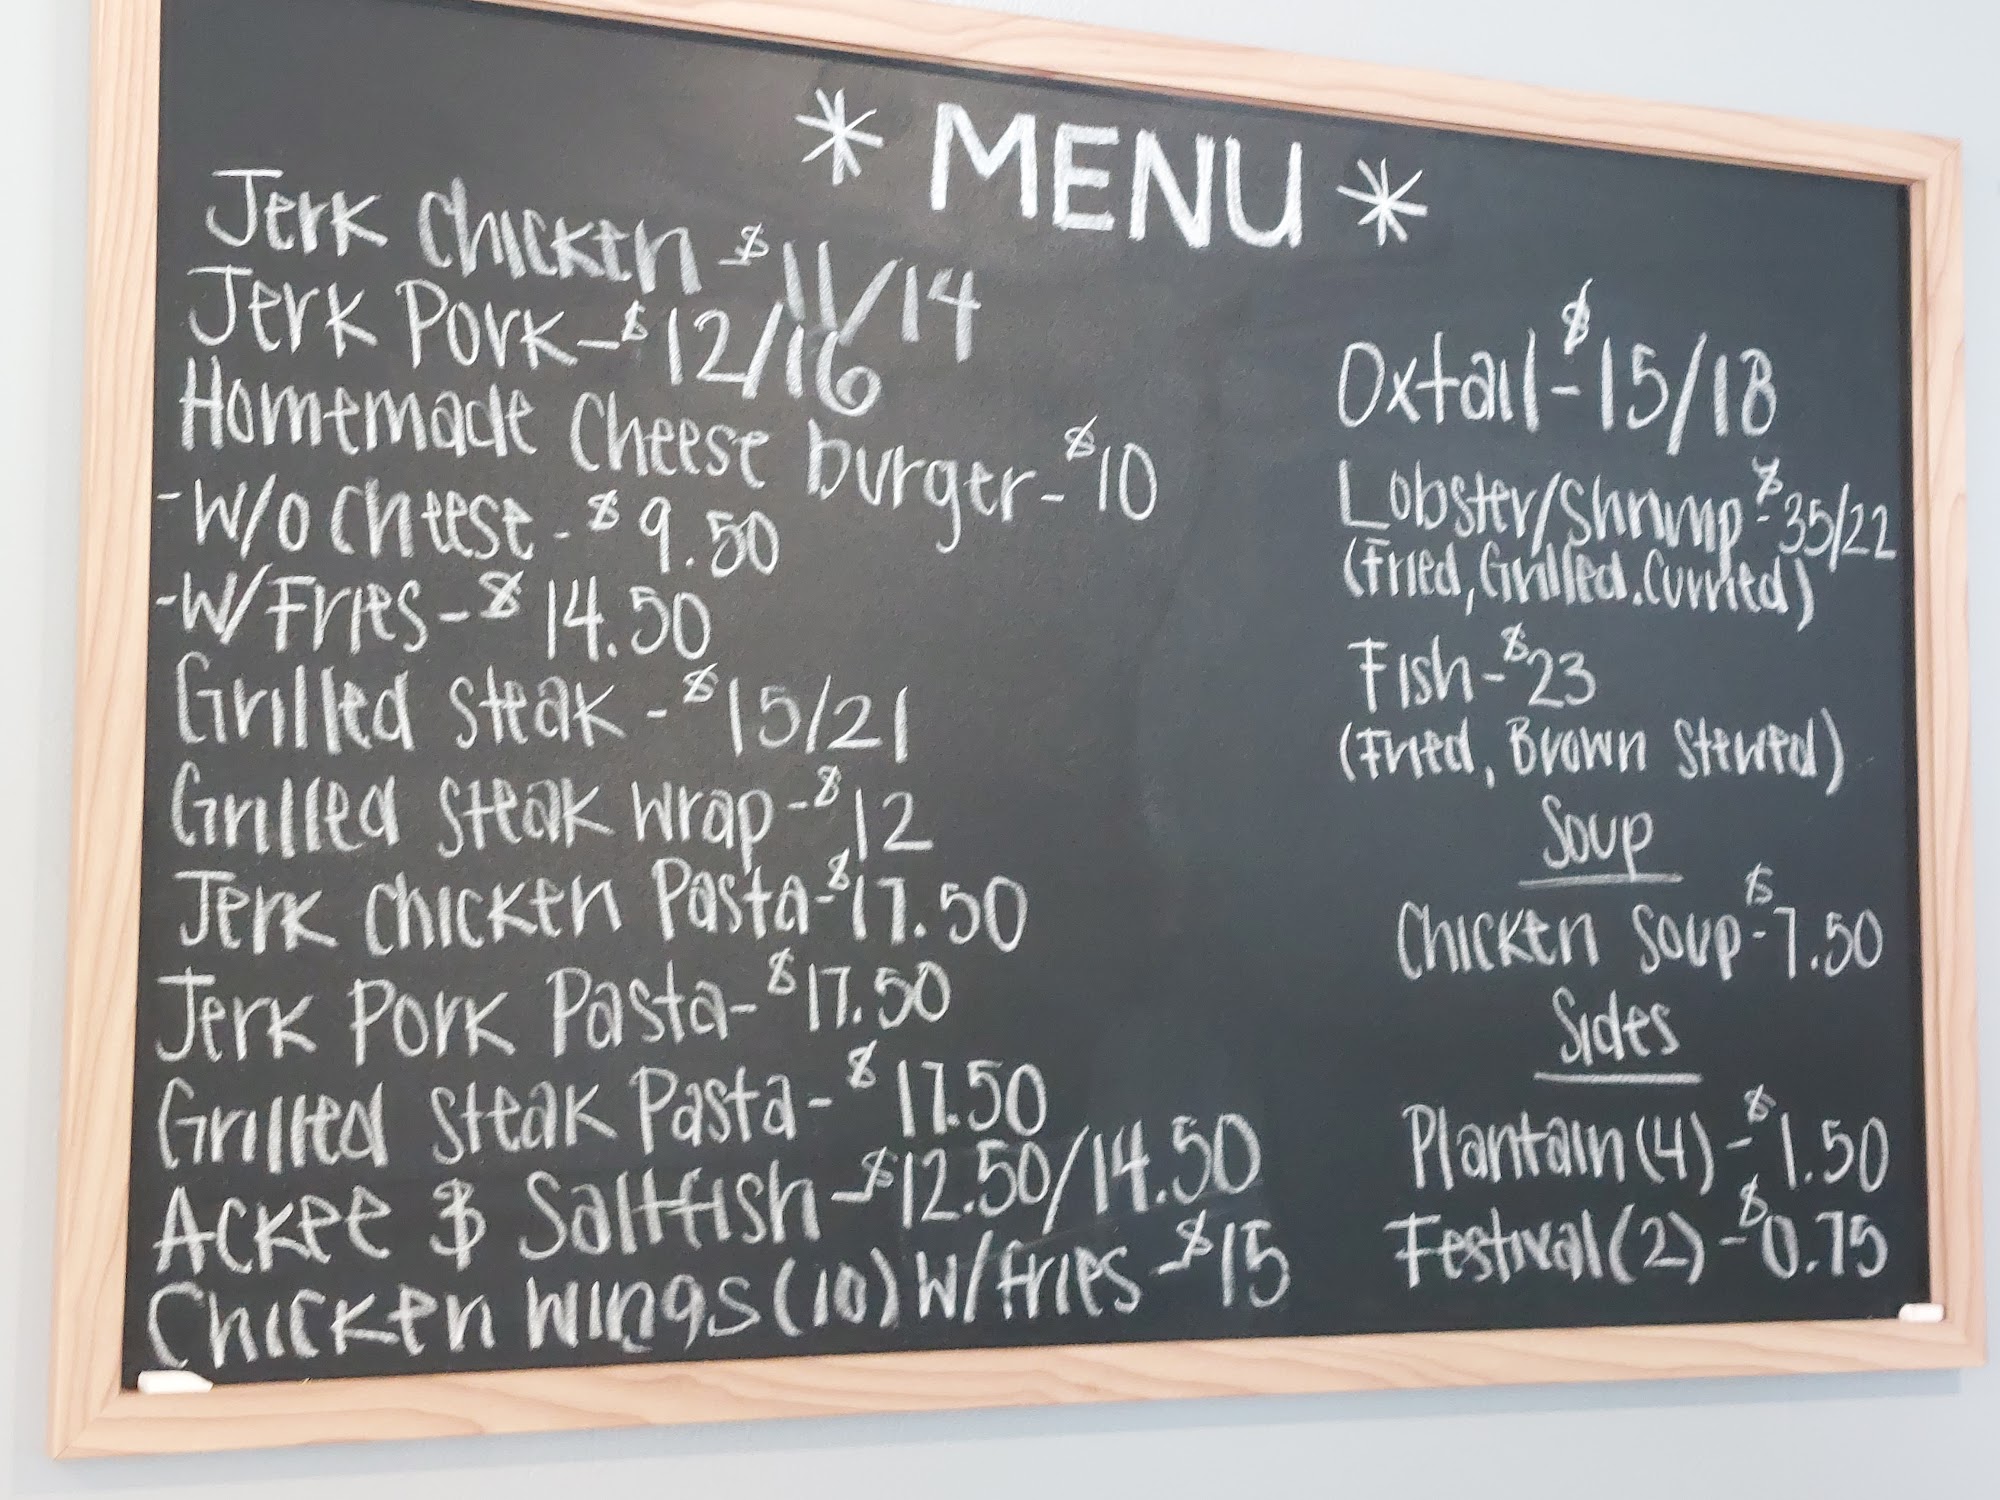 * MENU *
Jerk Chicken - $11/14
Jerk Pork - $12/16
Homemade Cheese burger - $10
- W/o Cheese - $9.50
- W/Fries - $14.50
Grilled Steak - $15/21
Grilled Steak Wrap - $12
Jerk Chicken Pasta - $17.50
Jerk Pork Pasta - $17.50
Grilled Steak Pasta - $17.50
Ackee & Saltfish - $12.50/14.50
Chicken Wings (10) W/Fries - $15
Oxtail - $15/18
Lobster/Shrimp - $35/22
(Fried, Grilled. Curried)
Fish - $23
(Fried, Brown Stewed)
Soup
Chicken Soup - $7.50
Sides
Plantain (4) - $1.50
Festival (2) - $0.75